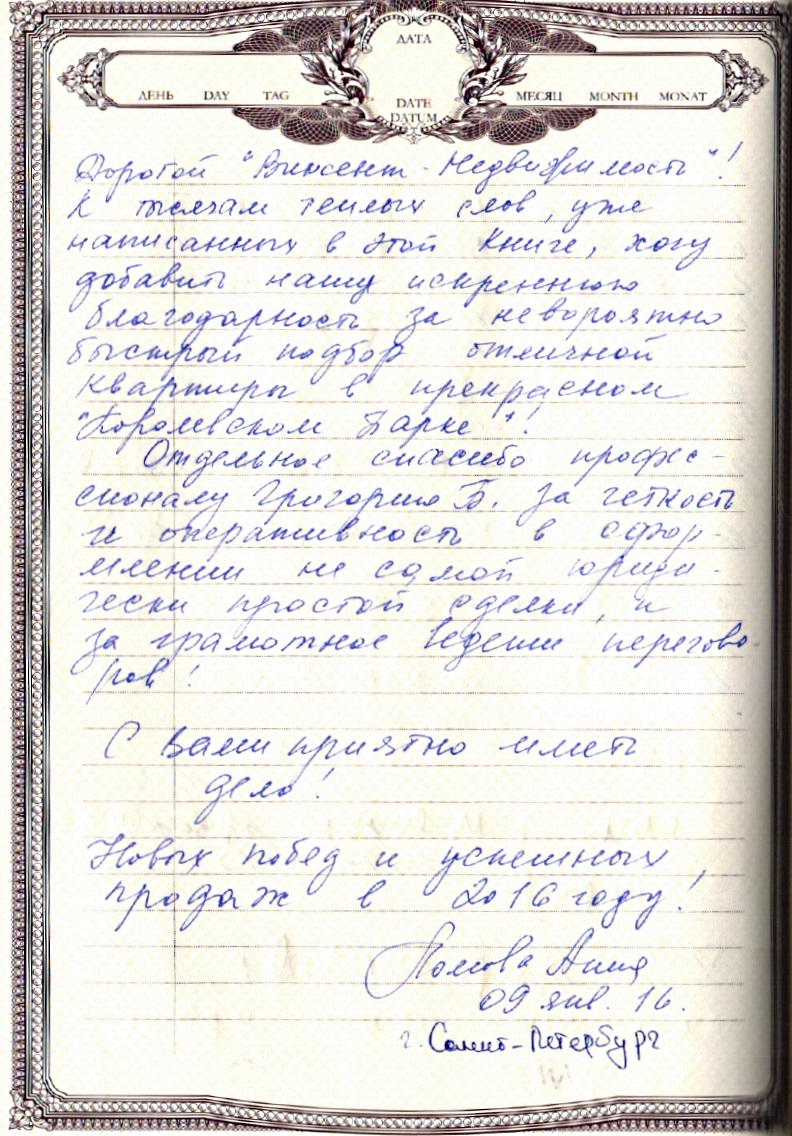 ДАТА
ДЕНЬ DAY TAG
МЕСЯЦ MONTH MONAT
DATE
DATUM
Дорогой "Винсент-Недвижимость"!
К тысячам теплых слов, уже
написанных в этой Книге, хочу
добавить нашу искреннюю
благодарность за невероятно
быстрый подбор отличной
квартиры в прекрасном
"Королевском Парке"!
Отдельное спасибо профес-
сионалу Григорию Б. за четкость
и оперативность в офор-
млении не самой юриди-
чески простой сделки, и
за грамотное ведение перегово-
ров!
С Вами приятно иметь
дело!
Новых побед и успешных
продаж в 2016 году!
Анна
09 янв. 16.
г. Санкт-Петербург